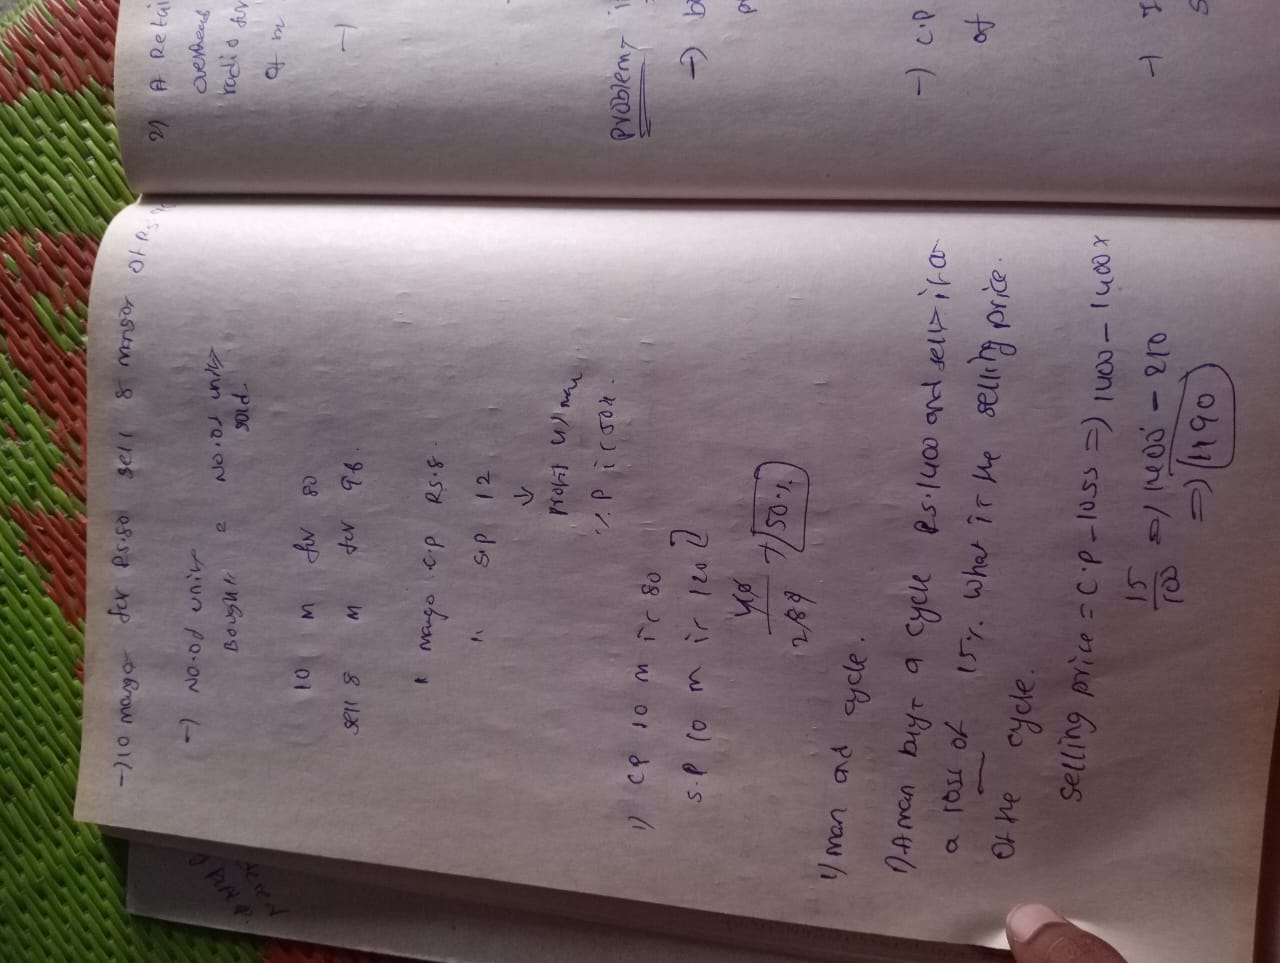 → 10 mango for Rs.80 sell 8 mango at Rs.96
→ No. of units Bought = No. of units sold
10 M for 80
sell 8 M for 96.
1 mango C.P Rs.8
" S.P 12
↓
profit
% P is 50%.
1) C.P 10 m is 80
S.P 10 m is 120
40
80
50%
1) man and cycle.
1) A man buys a cycle Rs.1400 and sells it at
a loss of 15%. What is the selling price
of the cycle.
Selling price = C.P - loss => 1400 - 1400 x
15/100 => 1400 - 210
=> 1190
2) A Retai
overhead
radio for
of
→
problems
→
→ C.P
of
→ I
S